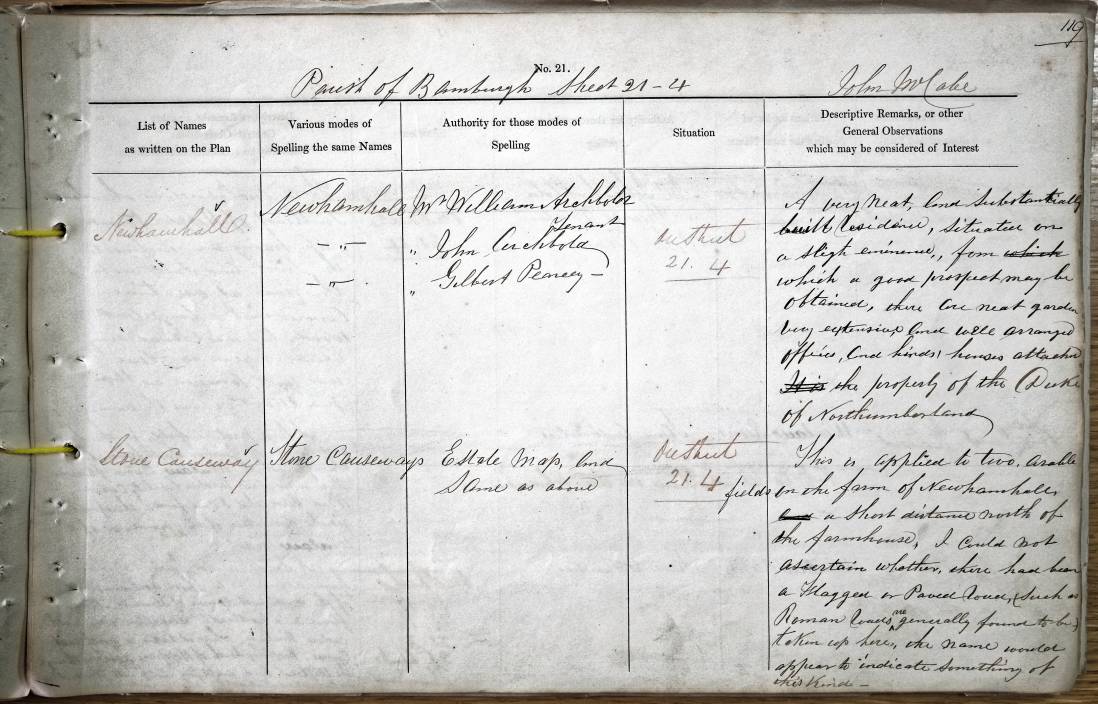 119
No. 21.
Parish of Bamburgh Sheet 21-4
John McCabe
List of Names
as written on the Plan
Various modes of
Spelling the same Names
Authority for those modes of
Spelling
Situation
Descriptive Remarks, or other
General Observations
which may be considered of Interest
Newhamhall
Newhamhall
Mr William Archbold
Tenant
— „ —
„ John Archbold
— „ —
„ Gilbert Pearcey —
on Sheet
21. 4
A very neat and substantially
built residence, situated on
a sligh eminence, from which
which a good prospect may be
obtained, there are neat garden
very extensive and well arranged
offices, and hinds' houses attached
It is the property of the Duke
of Northumberland
Stone Causeway
Stone Causeways
Estate Map, and
Same as above
on Sheet
21. 4
This is applied to two arable
fields on the farm of Newhamhall,
and a short distance north of
the farmhouse, I could not
ascertain whether, there had been
a Flagged or Paved road, (such as
Roman roads are generally found to be)
taken up here, the name would
appear to indicate something of
this kind —